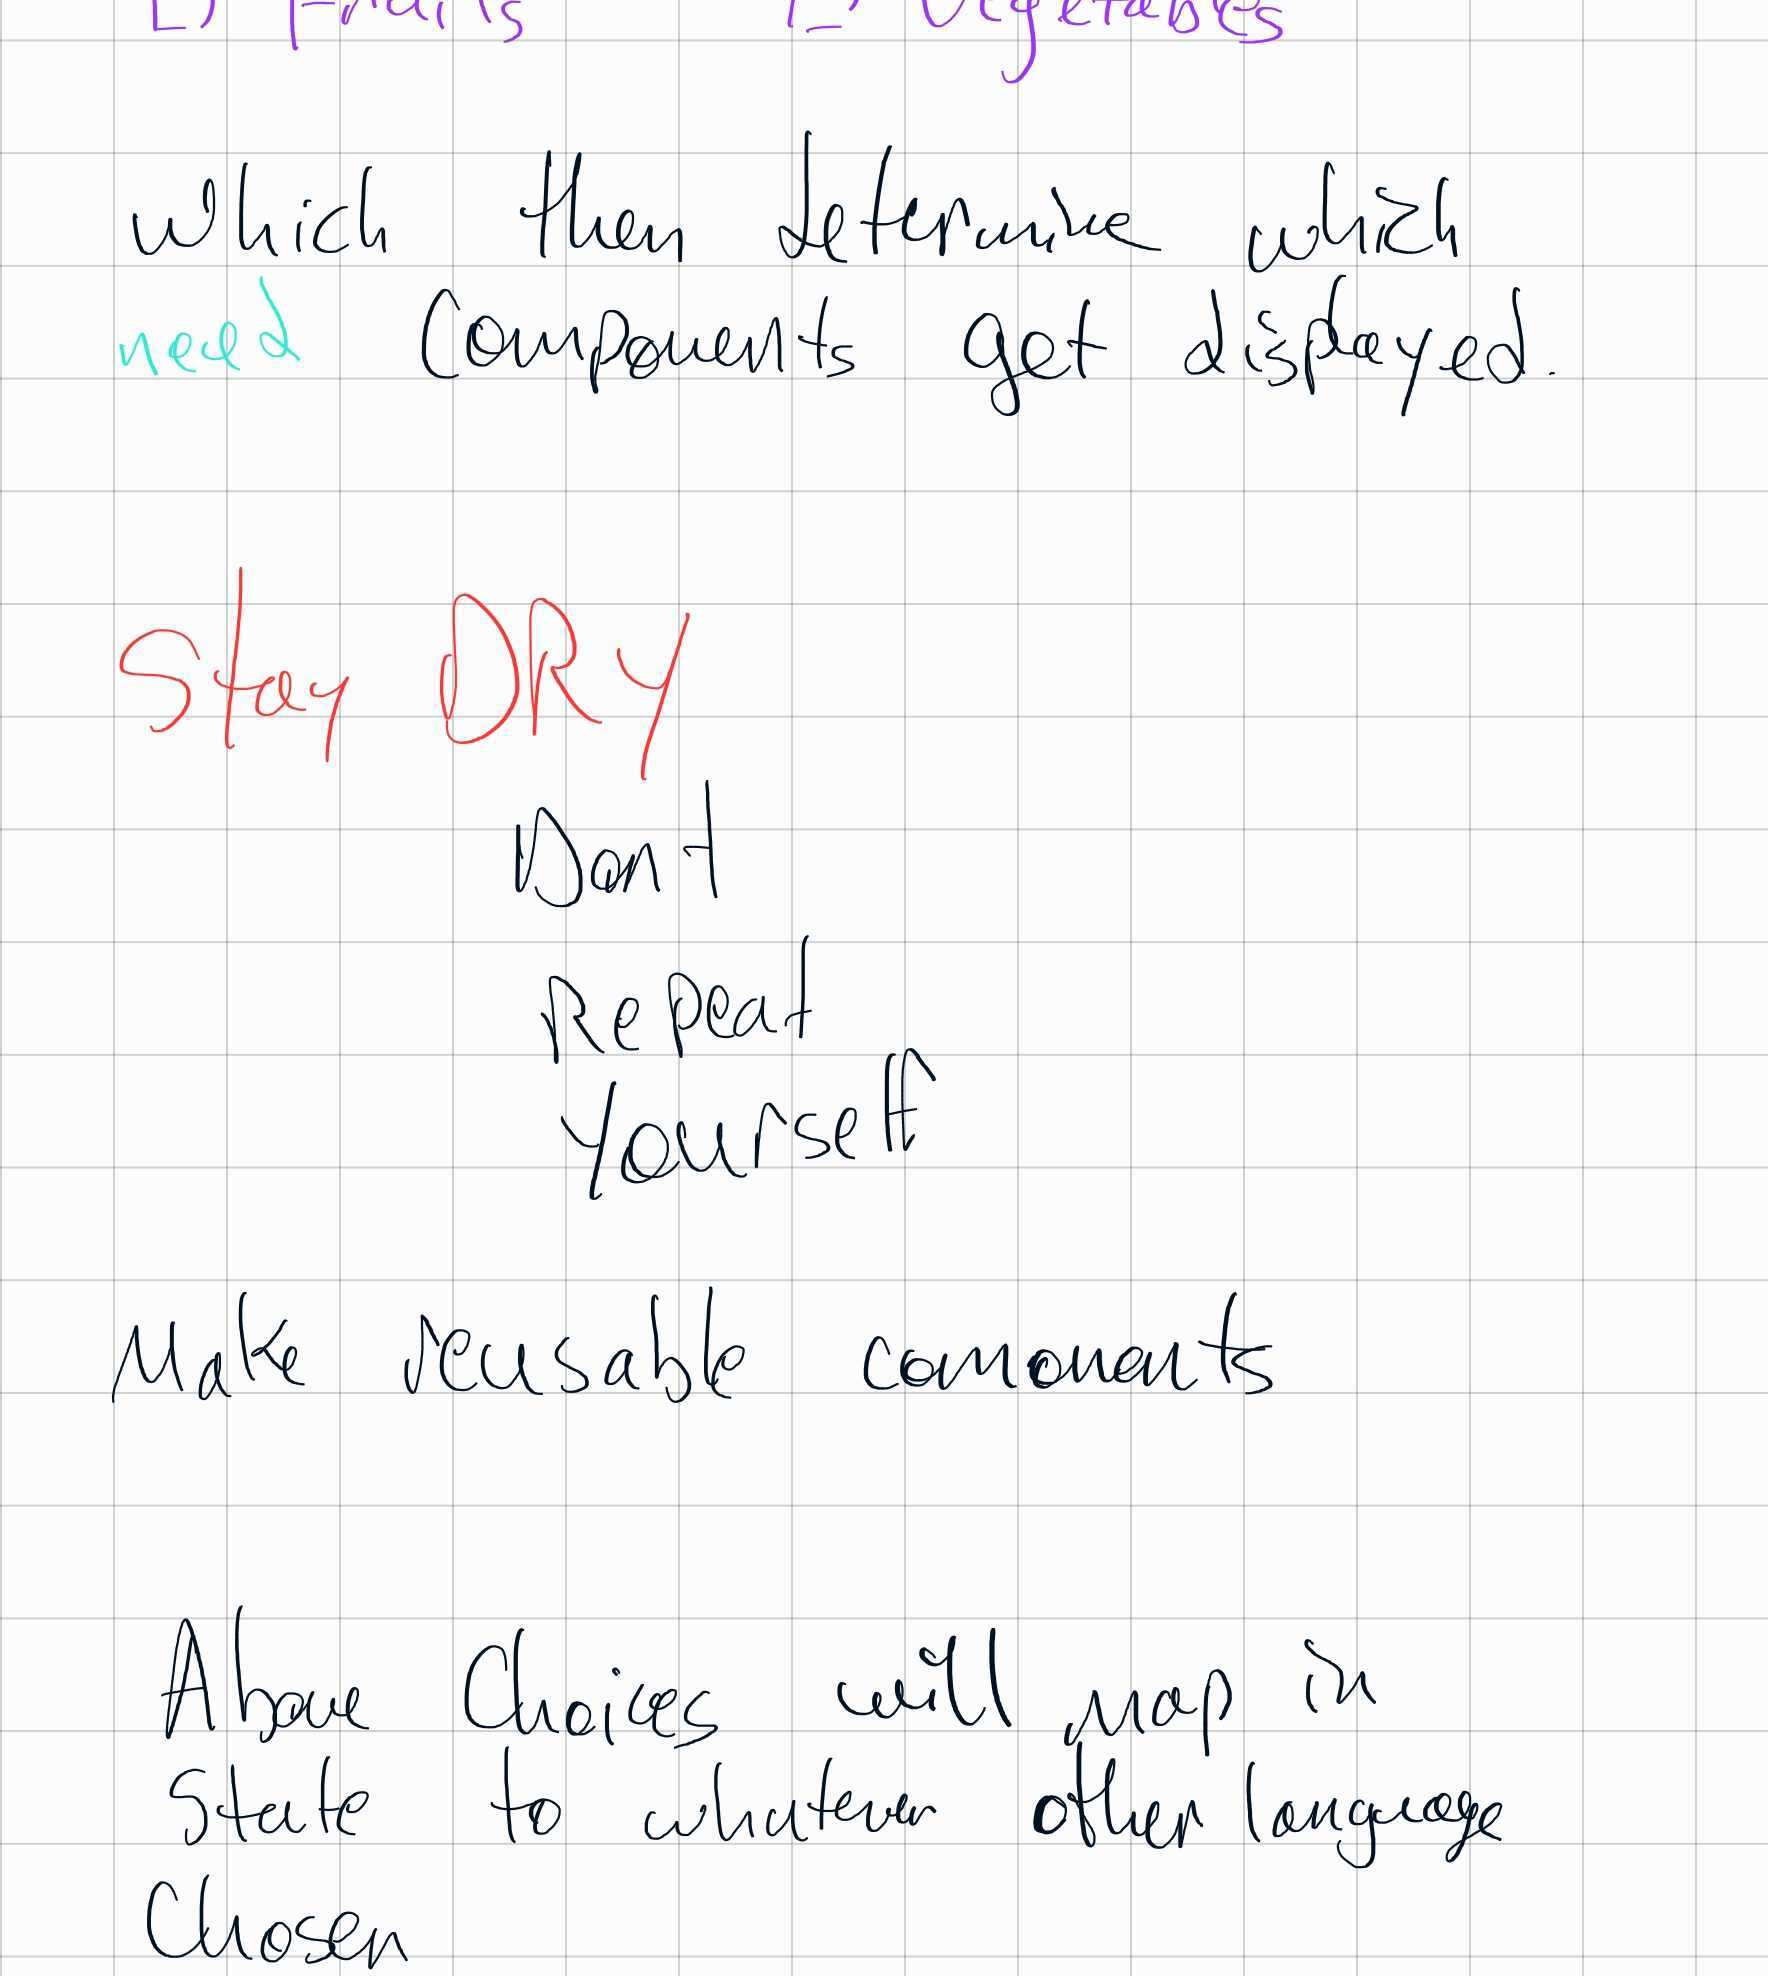 Fruits Vegetables
which then determine which
need Components get displayed.
Stay DRY
Dont
Repeat
Yourself
Make reusable comonents
Above Choices will map in
State to whatever other language
Chosen